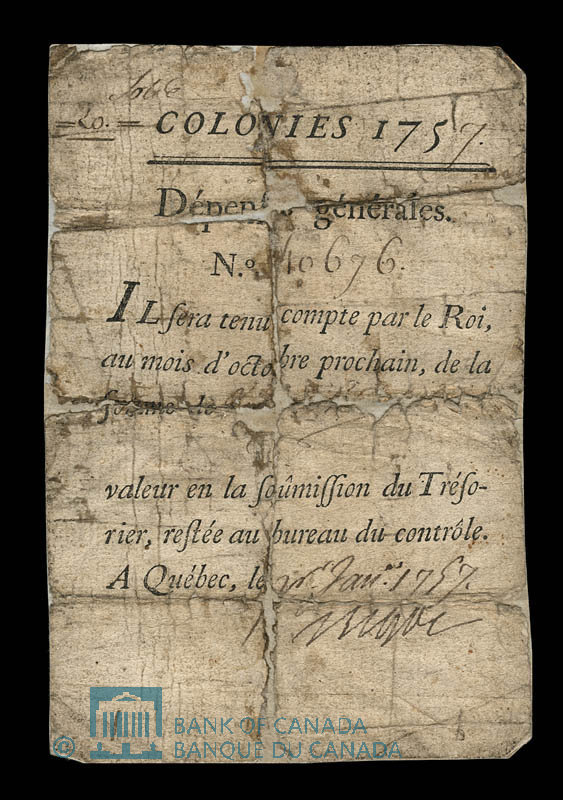 = 20. =
COLONIES 1757.
Dépenses générales.
N.º 10676.
IL sera tenu compte par le Roi,
au mois d'octobre prochain, de la
somme de
valeur en la soûmission du Tréso-
rier, restée au bureau du contrôle.
A Québec, le Janer. 1757.
BANK OF CANADA
© BANQUE DU CANADA